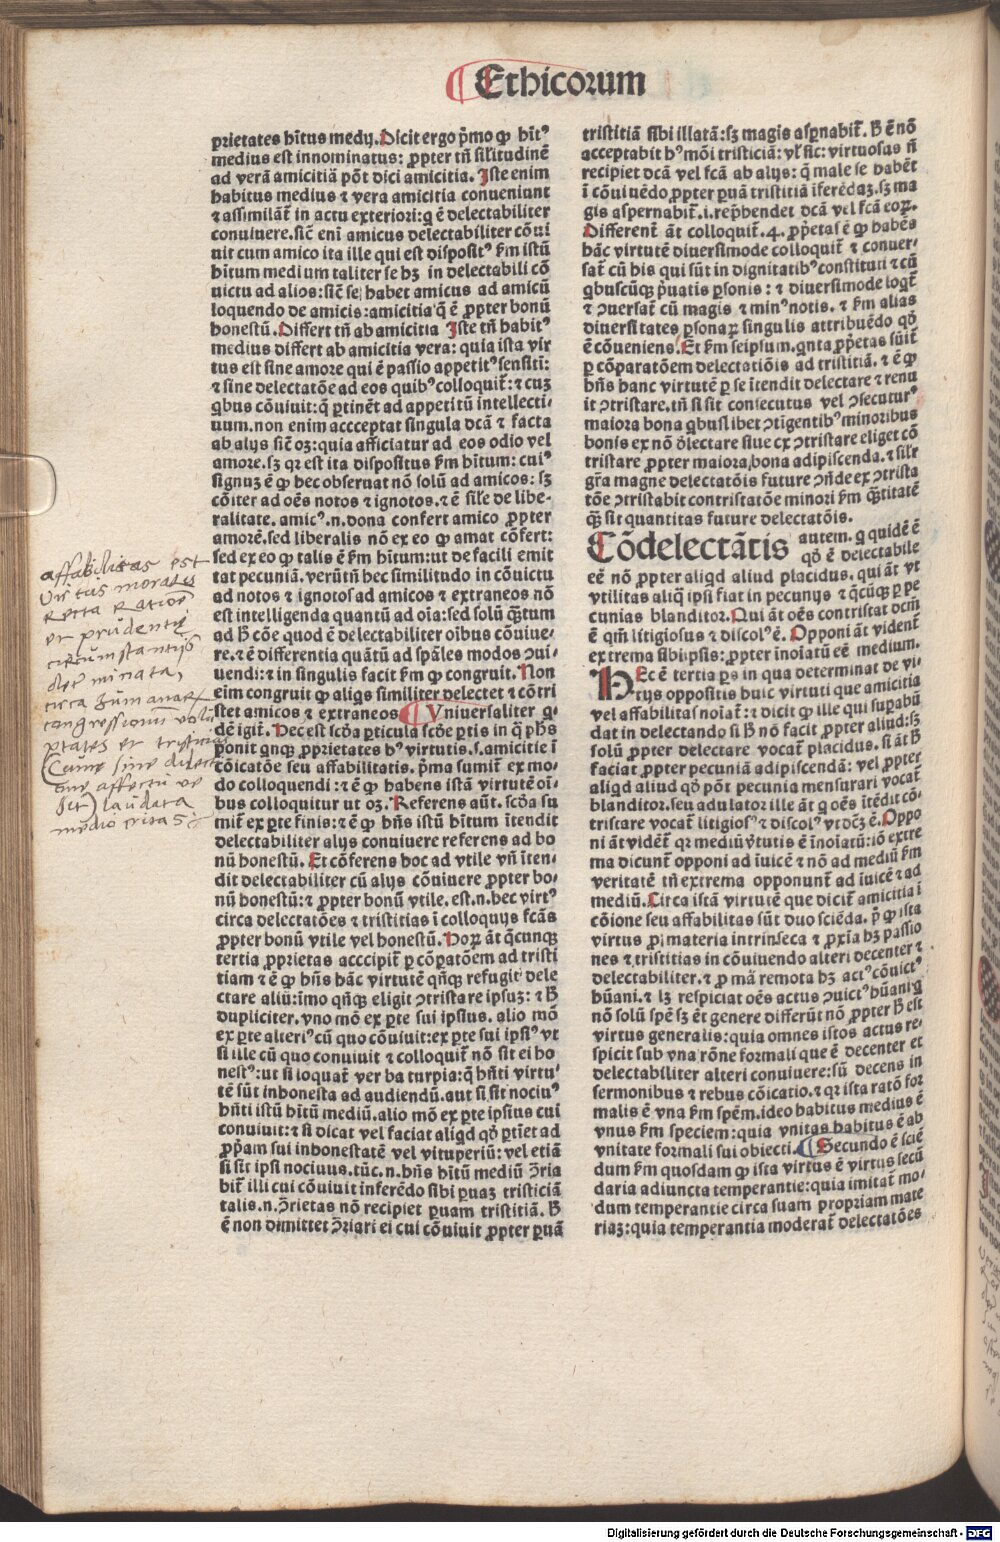 Ethicorum
prietates hītus medij. Dicit ergo p̄mo ꝙ hītꝰ
medius est innominatus: ꝓpter tn̄ sil'itudinē
ad verā amicitiā pōt dici amicitia. Iste enim
habitus medius ⁊ vera amicitia conueniunt
⁊ assimilāt̄ in actu exteriori: q̄ ē delectabiliter
conuiuere. sic̄ eni amicus delectabiliter cōui
uit cum amico ita ille qui est dispositꝰ ẜm istū
hītum medium taliter se hꝫ in delectabili cō
uictu ad alios: sic̄ se habet amicus ad amicū
loquendo de amicis: amicitia q̄ ē ꝓpter bonū
honestū. Differt tn̄ ab amicitia Iste tn̄ habitꝰ
medius differt ab amicitia vera: quia ista vir
tus est sine amore qui ē passio appetitꝰ sensiti:
⁊ sine delectatōe ad eos quibꝰ colloquit̄: ⁊ cuꝫ
qbus cōuiuit: q̄ ꝑtinēt ad appetitū intellecti⸗
uum. non enim accceptat singula dcā ⁊ facta
ab alijs sic̄ oꝫ: quia afficiatur ad eos odio vel
amore. sꝫ qꝛ est ita dispositus ẜm hītum: cuiꝰ
signuꝫ ē ꝙ hec obseruat nō solū ad amicos: sꝫ
cōiter ad oēs notos ⁊ ignotos. ⁊ ē sil'e de libe⸗
ralitate. amicꝰ. n. dona confert amico ꝓpter
amorē. sed liberalis nō ex eo ꝙ amat cōfert:
sed ex eo ꝙ talis ē ẜm hītum: ut de facili emit
tat pecuniā. verūtn̄ hec similitudo in cōuictu
ad notos ⁊ ignotos ad amicos ⁊ extraneos nō
est intelligenda quantū ad oīa: sed solū q̄ꝫtum
ad ɦ cōe quod ē delectabiliter oībus cōuiue⸗
re. ⁊ ē differentia quātū ad sp̄ales modos ꝯui⸗
uendi: ⁊ in singulis facit ẜm ꝙ congruit. Non
eīm congruit ꝙ aliqs similiter delectet ⁊ cōtri
stet amicos ⁊ extraneos Uniuersaliter q⸗
dē igit̄. Hec est scd̄a ꝑticula scd̄e ꝑtis in q̄ ph̄s
ponit qnqꝫ ꝓprietates hꝰ virtutis. s. amicitie ī
cōicatōe seu affabilitatis. p̄ma sumit̄ ex mo⸗
do colloquendi: ⁊ ē ꝙ habens istā virtutē oī⸗
bus colloquitur ut oꝫ. Referens aūt. scd̄a su
mit̄ ex ꝑte finis: ⁊ ē ꝙ hn̄s istū hītum ītendit
delectabiliter alijs conuiuere referens ad bo
nū honestū. Et cōferens hoc ad vtile vn̄ īten⸗
dit delectabiliter cū alijs cōuiuere ꝓpter bo⸗
nū honestū: ⁊ ꝓpter bonū vtile. est. n. hec virtꝰ
circa delectatōes ⁊ tristitias ī colloquijs fcās
ꝓpter bonū vtile vel honestū. Hoꝝ āt q̄cunqꝫ
tertia ꝓprietas acccipit̄ ꝑ cōꝑatōem ad tristi
tiam ⁊ ē ꝙ hn̄s hāc virtutē qn̄qꝫ refugit dele
ctare aliū: īmo qn̄qꝫ eligit ꝯtristare ipsuꝫ: ⁊ ɦ
dupliciter. vno mō ex ꝑte sui ipsius. alio mō
ex ꝑte alteriꝰ cū quo cōuiuit: ex ꝑte sui ipsiꝰ vt
si ille cū quo conuiuit ⁊ colloquit̄ nō sit ei ho
nestꝰ: ut si loquat̄ ver ba turpia: q̄ hn̄ti virtu⸗
tē sūt inhonesta ad audiendū. aut si sit nociuꝰ
hn̄ti istū hītū mediū. alio mō ex ꝑte ipsius cui
conuiuit: ⁊ si dicat vel faciat aliqd qd̄ ꝑtīet ad
ꝓp̄am sui inhonestatē vel vituperiū: vel etiā
si sit ipsi nociuus. tūc. n. hn̄s hītū mediū ꝯ̄ria
bit̄ illi cui cōuiuit inferēdo sibi ꝑuaꝫ tristiciā
talis. n. ꝯ̄rietas nō recipiet ꝑuam tristitiā. ɦ
ē non dimittet ꝯ̄riari ei cui cōuiuit ꝓpter ꝑuā
tristitiā sibi illatā: sꝫ magis asꝑnabit̄. ɦ ē nō
acceptabit hꝰmōi tristiciā: vl' sic: virtuosas n̄
recipiet dcā vel fcā ab alijs: q̄ male se habēt
ī cōuiuēdo ꝓpter ꝑuā tristitiā īferēdaꝫ. sꝫ ma
gis aspernabit̄. i. rep̄hendet dcā vel fcā eoꝝ.
Different̄ āt colloquit̄. 4. ꝓp̄etas ē ꝙ habēs
hāc virtutē diuersimode colloquit̄ ⁊ conuer⸗
sat̄ cū his qui sūt in dignitatibꝰ constituti ⁊ cū
qbuscūqꝫ p̄uatis ꝑsonis: ⁊ diuersimode loqt̄
⁊ ꝯuersat̄ cū magis ⁊ minꝰ notis. ⁊ ẜm alias
diuersitates ꝑsonaꝝ singulis attribuēdo qd̄
ē cōueniens. Et ẜm seipsum. qnta ꝓp̄etas sūit̄
ꝑ cōꝑatōem delectatiōis ad tristitiā. ⁊ ē ꝙ
hn̄s hanc virtutē ꝑ se ītendit delectare ⁊ renu
it ꝯtristare. tn̄ si sit consecutus vel ꝯsecuturꝰ
maiora bona qbuslibet ꝯtīgentibꝰ minoribus
bonis ex nō d̄lectare siue ex ꝯtristare eliget cō
tristare ꝓpter maiora bona adipiscenda. ⁊ sil'r
gr̄a magne delectatōis future ꝯn̄de ex ꝯtrista
tōe ꝯtristabit contristatōe minori ẜm q̄titatē
q̄ꝫ sit quantitas future delectatōis.
Cōdelectātis autem. q quidē ē
qd̄ ē delectabile
eē nō ꝓpter aliqd aliud placidus. qui āt vt
vtilitas aliq̄ ipsi fiat in pecunijs ⁊ q̄cūqꝫ ꝑ pe
cunias blanditor. Qui āt oēs contristat dcm̄
ē qm̄ litigiosus ⁊ discolꝰ ē. Opponi āt vident̄
extrema sibiipsis: ꝓpter īnoiatū eē medium.
HEc ē tertia ꝑs in qua determinat de vi
tijs oppositis huic virtuti que amicitia
vel affabilitas noīat̄: ⁊ dicit ꝙ ille qui suꝑabū
dat in delectando si ɦ nō facit ꝓpter aliud: sꝫ
solū ꝓpter delectare vocat̄ placidus. si āt ɦ
faciat ꝓpter pecuniā adipiscendā: vel ꝓpter
aliqd aliud qd̄ pōt pecunia mensurari vocat̄
blanditor. seu adulator ille āt q oēs ītēdit cō⸗
tristare vocat̄ litigiosꝰ ⁊ discolꝰ vt dc̄ꝫ ē. Oppo
ni āt vidēt̄ qꝛ mediū v̄tutis ē īnoiatū: iō extre
ma dicunt̄ opponi ad īuicē ⁊ nō ad mediū ẜm
veritatē tn̄ extrema opponunt̄ ad īuicē ⁊ ad
mediū. Circa istā virtutē que dicit̄ amicitia ī
cōione seu affabilitas sūt duo sciēda. p̄ ꝙ ista
virtus ꝓ materia intrinseca ⁊ ꝓxīa hꝫ passio
nes ⁊ tristitias in cōuiuendo alteri decenter ⁊
delectabiliter. ⁊ ꝓ mā remota hꝫ actꝰ cōuictꝰ
hūani. ⁊ lꝫ respiciat oēs actus ꝯuictꝰ hūani q
nō solū spē sꝫ ēt genere differūt nō ꝓpter ɦ est
virtus generalis: quia omnes istos actus re⸗
spicit sub vna rōne formali que ē decenter et
delectabiliter alteri conuiuere: sū decens in
sermonibus ⁊ rebus cōicatio. ⁊ qꝛ ista ratō for
malis ē vna ẜm spēm. ideo habitus medius ē
vnus ẜm speciem: quia vnitas habitus ē ab
vnitate formali sui obiecti. Secundo ē sciē
dum ẜm quosdam ꝙ ista virtus ē virtus secū
daria adiuncta temperantie: quia imitat̄ mo⸗
dum temperantie circa suam propriam mate
riaꝫ: quia temperantia moderat̄ delectatōes
affabilitas est
virtus moralis
recta ratiōe
et prudentiȩ
circumstantijs
determinata,
circa humanar̄
congressionum volu
ptates et tristitias
(Cum sine dilecti
one affectu
sit) laudata
medio
Digitalisierung gefördert durch die Deutsche Forschungsgemeinschaft - DFG